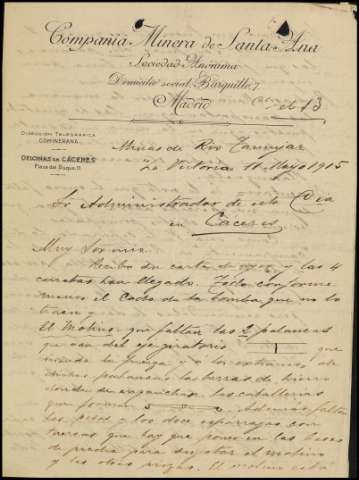 Compañía Minera de Santa Ana
Sociedad Anónima
Domicilio social, Barquillo 7
Madrid
el 13
DIRECCIÓN TELEGRÁFICA
COMINERANA
OFICINAS EN CÁCERES
Plaza del Duque 11
Minas de Rio Tamujar
La Victoria 11 Mayo 1915
Sr Administrador de esta Cia
en
Cáceres
Muy Sr mio.
Recibo su carta de ayer y las 4
carretas han llegado. Todo conforme
menos el Codo de la bomba que no lo
traen y
El Molino, que faltan las 2 palancas
que van del ejiratorio que
y a los extremos de
las barras de hierro
donde se enganchan las caballerias
que forman Ademas faltan
las pesas y los doce esparragos con
tuercas que hay que poner en las bases
de piedra para sujetar el molino
y las otras piezas. El molino está